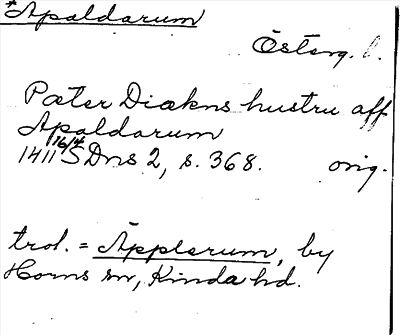 *Apaldarum
Österg. l.
Pæter Diækns hustru aff
Apaldarum
1411 16/4 SDns 2, s. 368. orig.
trol. = Äpplerum, by
Horns sn, Kinda hd.